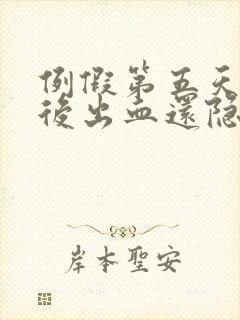 例假第五天
後出血還隐
岸本聖安